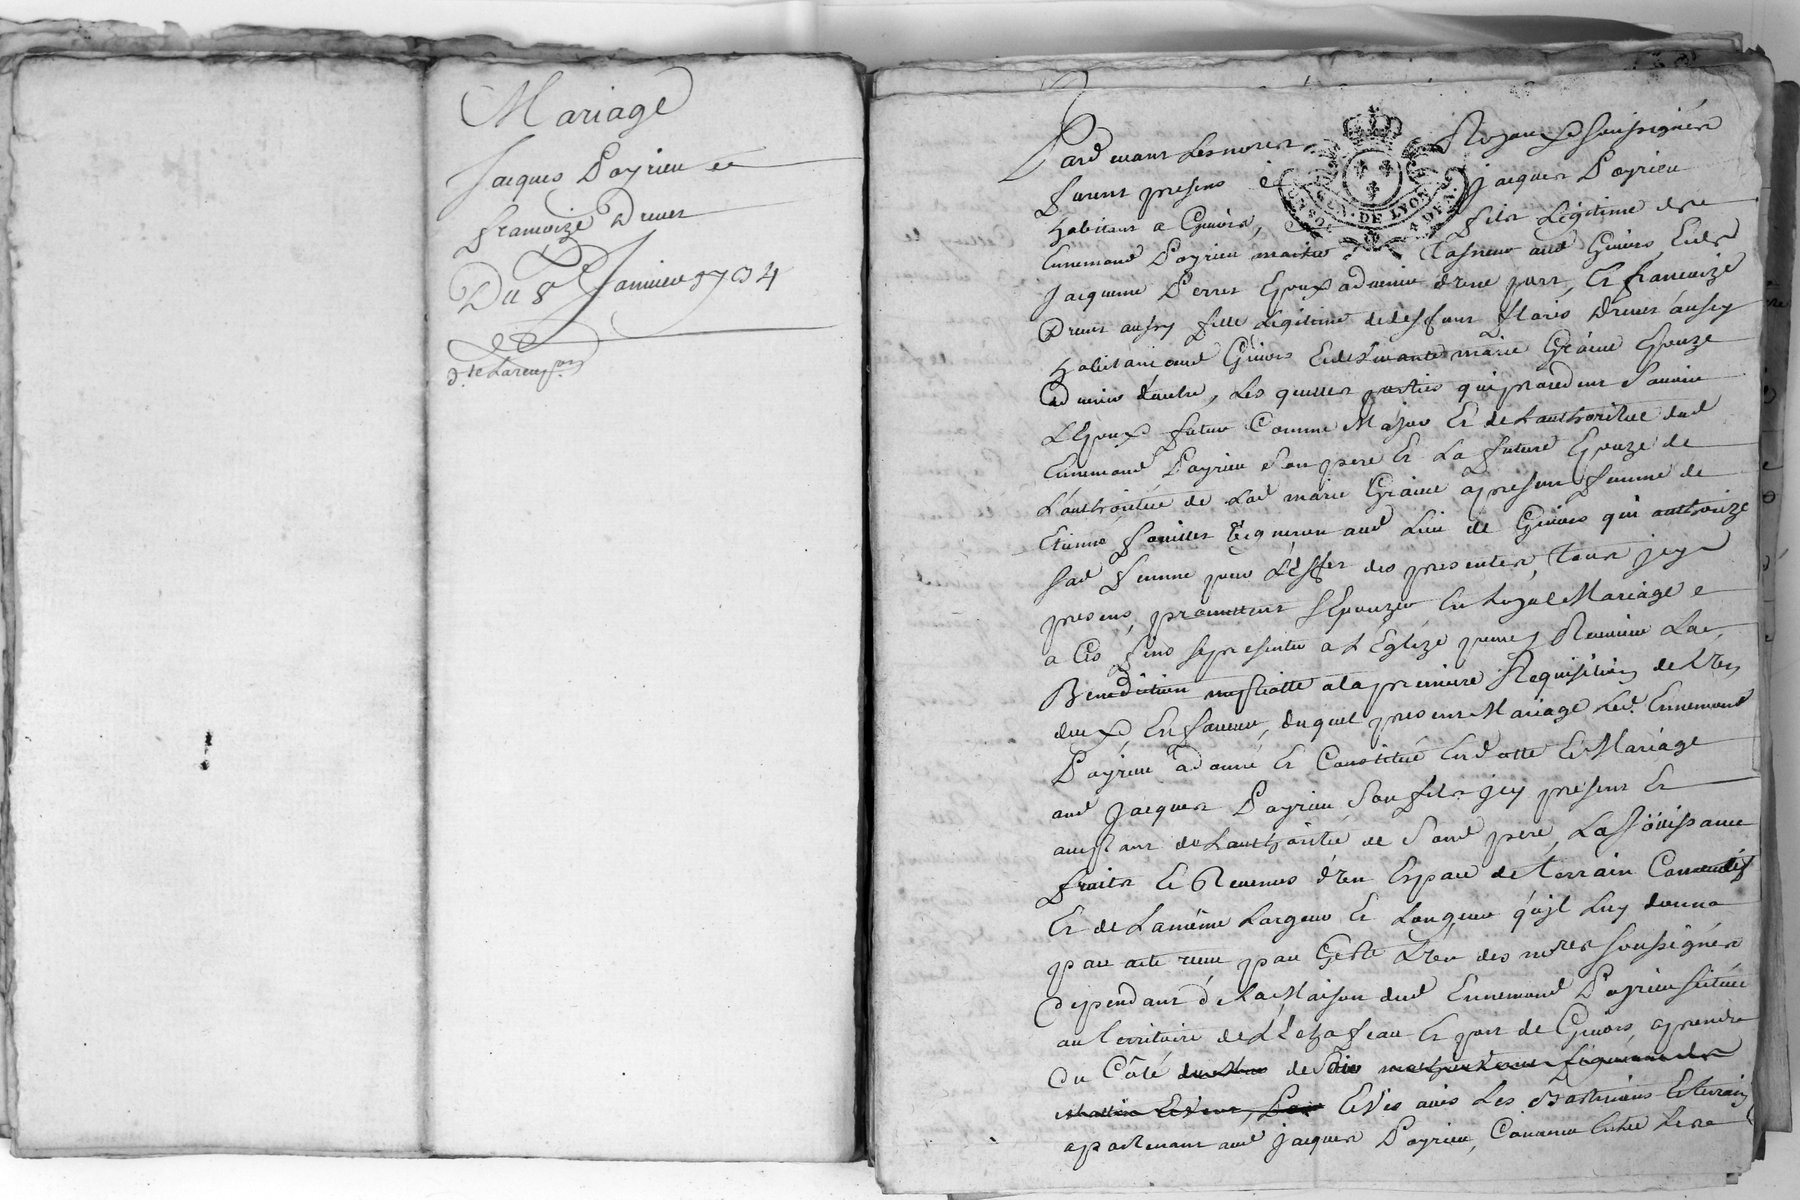 Mariage
Jacques Payrieu et
francoize Drevet
Du 8e Janvier 1734
Pardevant Les no.res Royaux Soussignés
furent presens Jacques Payrieu
habitant a Givors, fils Légitime de
Ennemond Payrieu maitre aud Givors Et de
Jacqueme Perret Epoux advenir d'une part, Et francoize
Drevet aussy fille Légitime de deffunt Drevet aussy
habitant aud Givors Et de vivante marie Epouze
advenir d'autre, Les quelles parties qui procedent Savoir
L'Epoux futur Comme Majeur Et de Lauthorité dud
Ennemond Payrieu Son pere Et La future Epouze de
L'authorité de Lad marie apresent femme de
Etienne vigneron aud Lieu de Givors qui authorize
Sad femme pour L'Effet des presentes, tous jcy
presens, promettent S'Epouzer En Loyal Mariage e
a Ces fins se presenter a L'Eglize pour y Recevoir La
Benediction nuptialle a la premiere Requisition de L'un
deux En faveur, duquel present Mariage Led. Ennemond
Payrieu a donné Et Constitué En dotte Et Mariage
aud Jacques Payrieu Son fils jcy present Et
acceptant de Lauthorité de Sond pere, La Jöuissance
fruits Et Revenus d'un Espace de terrain
Et de La même Largeur Et Longueur qu'jl Luy donna
par acte receu par L'un des no.res Soussignés
dependant de La Maison dud Ennemond Payrieu Scituée
au territoire de Et port de Givors aprendre
Du Côté de
Et vis avis Les Et terrain
apartenant aud Jacques Payrieu,
GEN. DE LYON